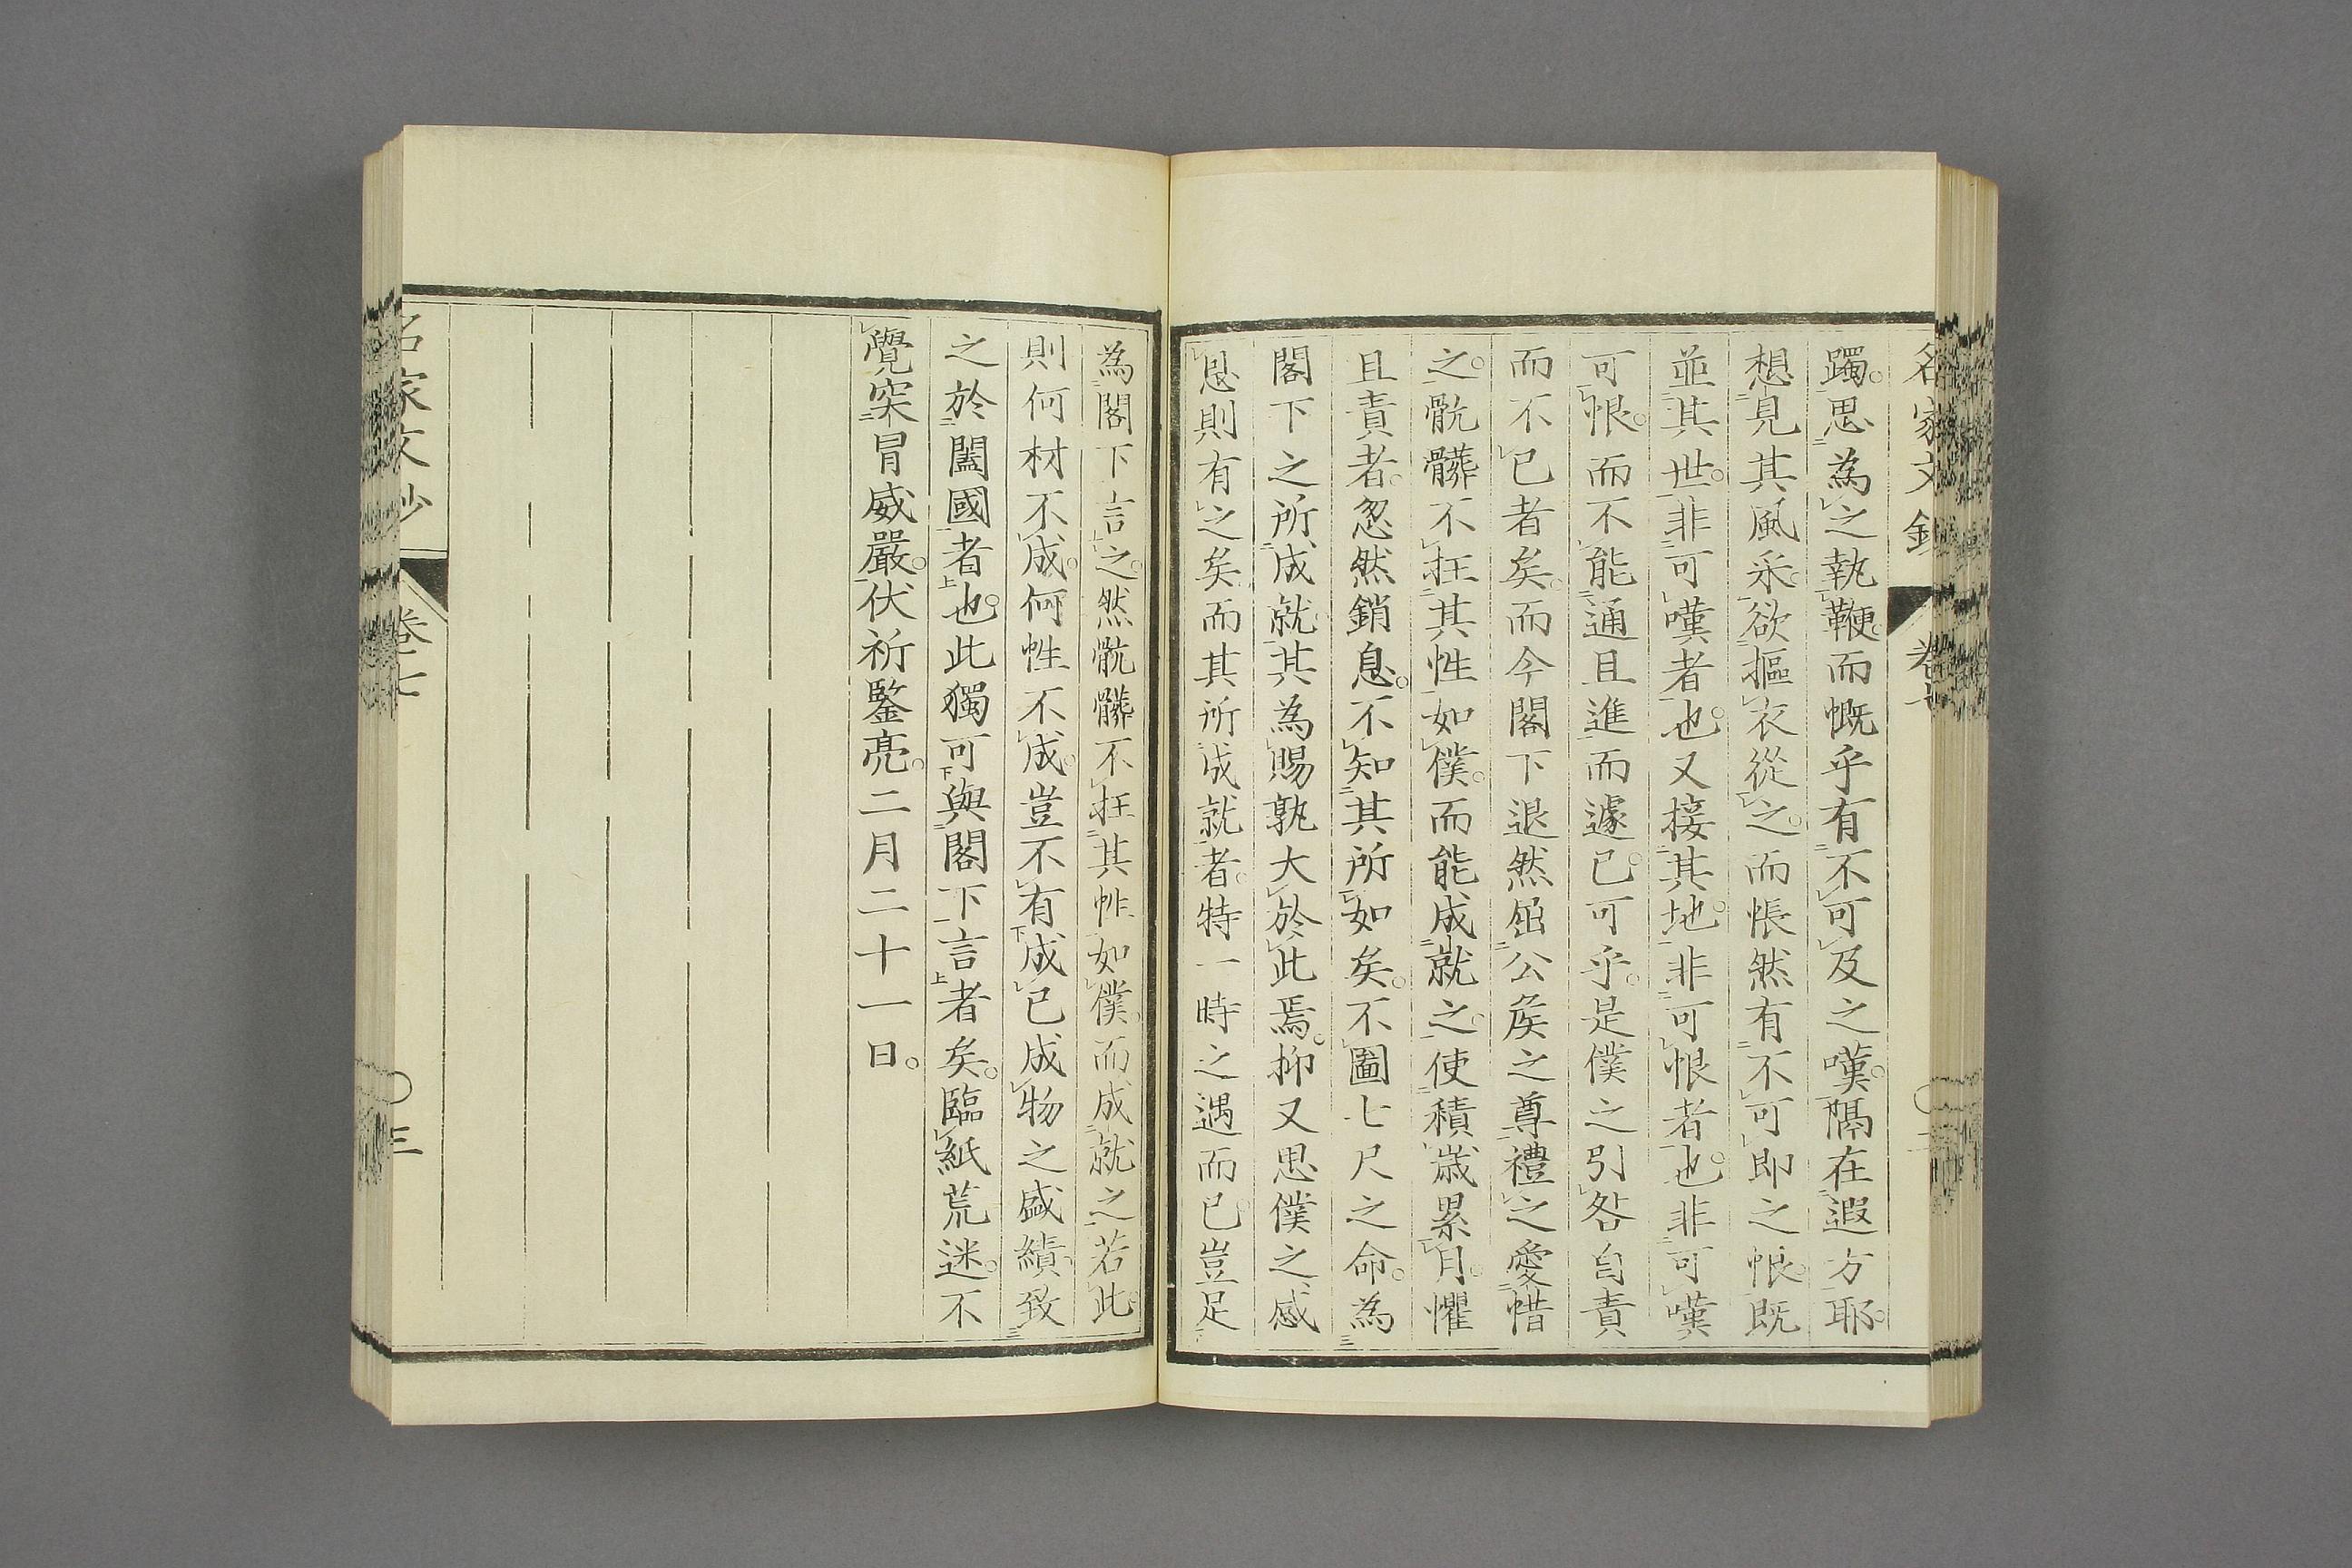 名家文鈔 卷七
躅。思為之執鞭。而慨乎有不可及之嘆。隔在遐方耶。
想見其風采。欲摳衣從之。而悵然有不可即之恨。既
並其世。非可嘆者也。又接其地。非可恨者也。非可嘆
可恨。而不能通且進。而遽已。可乎。是僕之引咎自責
而不已者矣。而今閣下退然屈公矦之尊。禮之愛惜
之。骯髒不枉其性如僕。而能成就之。使積歲累月。懼
且責者。忽然銷息。不知其所如矣。不圖七尺之命。為
閣下之所成就。其為賜孰大於此焉。抑又思僕之感
恩則有之矣。而其所成就者。特一時之遇而已。豈足
為閣下言之。然骯髒不枉其性如僕。而成就之若此。
則何材不成。何性不成。豈不有成已成物之盛績。致
之於闔國者也。此獨可與閣下言者矣。臨紙荒迷。不
覺突冒威嚴。伏祈鑒亮。二月二十一日。
名家文鈔 卷七 〇三